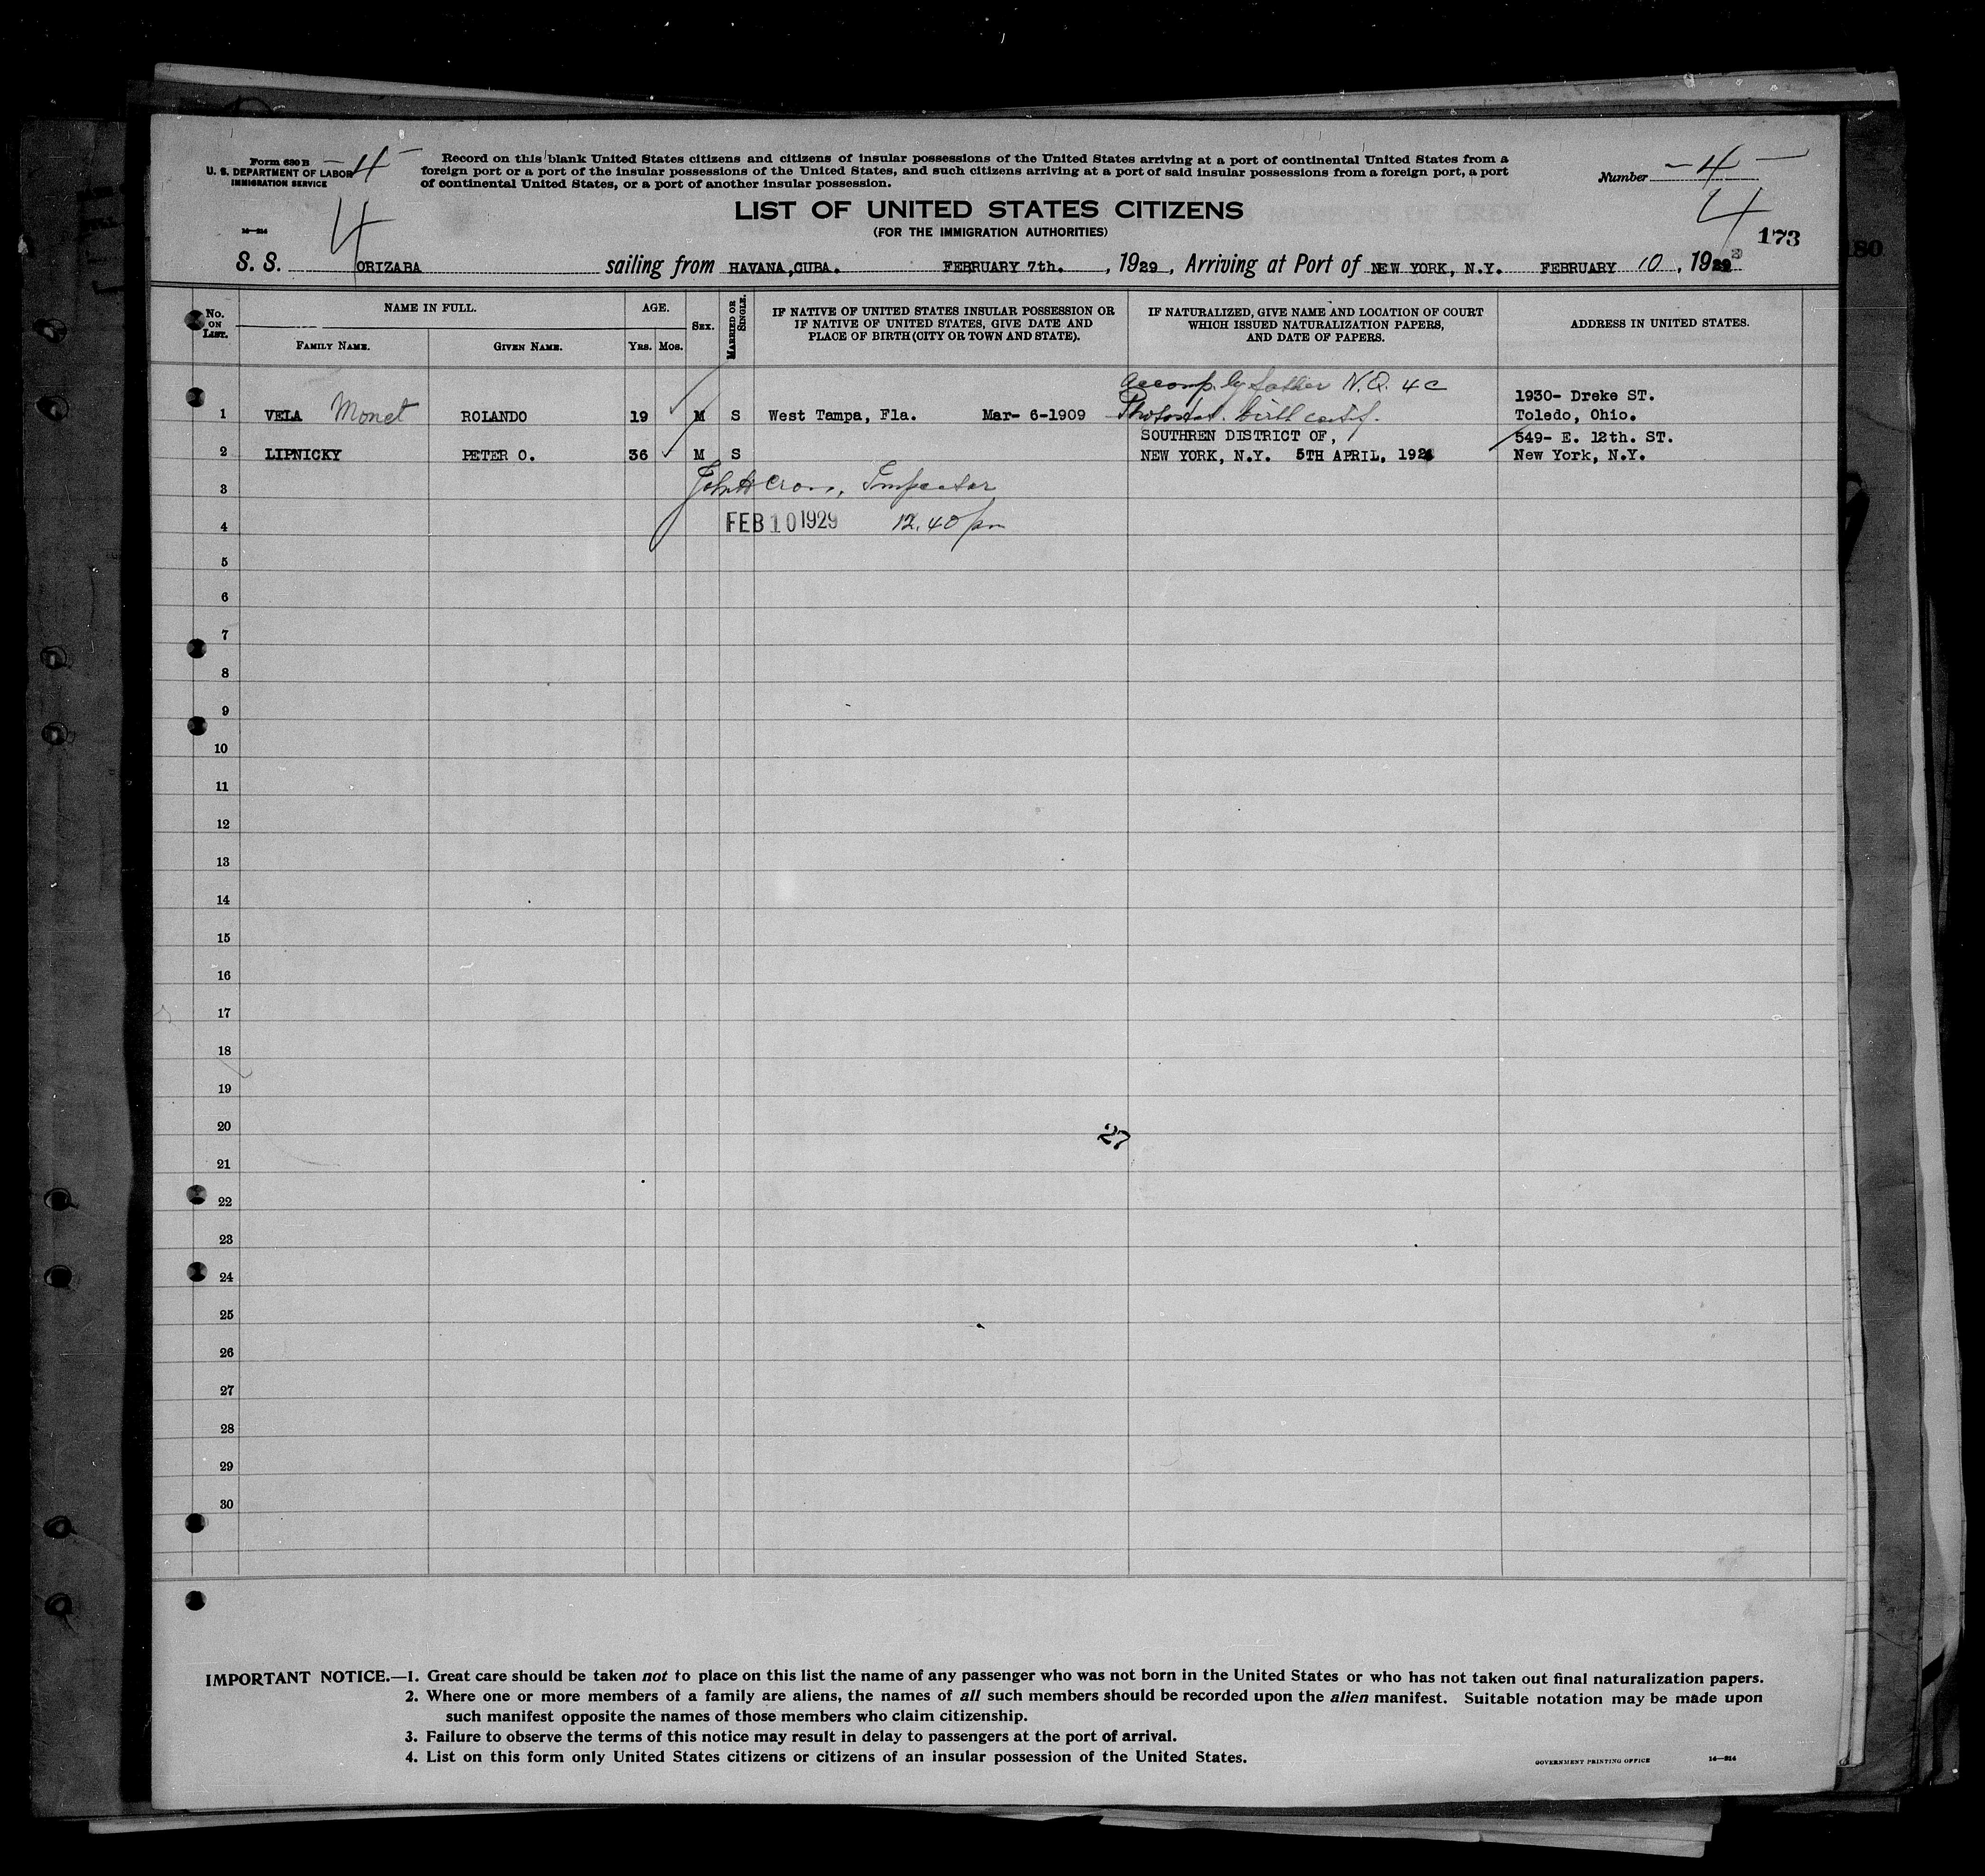 Form 630 B
U. S. DEPARTMENT OF LABOR
IMMIGRATION SERVICE
-4-
Record on this blank United States citizens and citizens of insular possessions of the United States arriving at a port of continental United States from a
foreign port or a port of the insular possessions of the United States, and such citizens arriving at a port of said insular possessions from a foreign port, a port
of continental United States, or a port of another insular possession.
Number -4-
LIST OF UNITED STATES CITIZENS
(FOR THE IMMIGRATION AUTHORITIES)
14—214
4
4
173
180
S. S. ORIZABA sailing from HAVANA,CUBA. FEBRUARY 7th. , 1929 , Arriving at Port of NEW YORK, N.Y. FEBRUARY 10 , 1929
No. ON LIST.
NAME IN FULL.
FAMILY NAME. GIVEN NAME.
AGE.
YRS. MOS.
SEX.
MARRIED OR SINGLE.
IF NATIVE OF UNITED STATES INSULAR POSSESSION OR
IF NATIVE OF UNITED STATES, GIVE DATE AND
PLACE OF BIRTH (CITY OR TOWN AND STATE).
IF NATURALIZED, GIVE NAME AND LOCATION OF COURT
WHICH ISSUED NATURALIZATION PAPERS,
AND DATE OF PAPERS.
ADDRESS IN UNITED STATES.
Accomp. by father N.Q. 4c
1930- Dreke ST.
1 VELA Monet ROLANDO 19 M S West Tampa, Fla. Mar- 6-1909 Photostat. birth certif. Toledo, Ohio.
SOUTHREN DISTRICT OF, 549- E. 12th. ST.
2 LIPNICKY PETER O. 36 M S NEW YORK, N.Y. 5TH APRIL, 192 New York, N.Y.
3 Inspector
4 FEB 10 1929 12.40 pm
5
6
7
8
9
10
11
12
13
14
15
16
17
18
19
20
27
21
22
23
24
25
26
27
28
29
30
IMPORTANT NOTICE.—1. Great care should be taken not to place on this list the name of any passenger who was not born in the United States or who has not taken out final naturalization papers.
2. Where one or more members of a family are aliens, the names of all such members should be recorded upon the alien manifest. Suitable notation may be made upon
such manifest opposite the names of those members who claim citizenship.
3. Failure to observe the terms of this notice may result in delay to passengers at the port of arrival.
4. List on this form only United States citizens or citizens of an insular possession of the United States.
GOVERNMENT PRINTING OFFICE 14—214